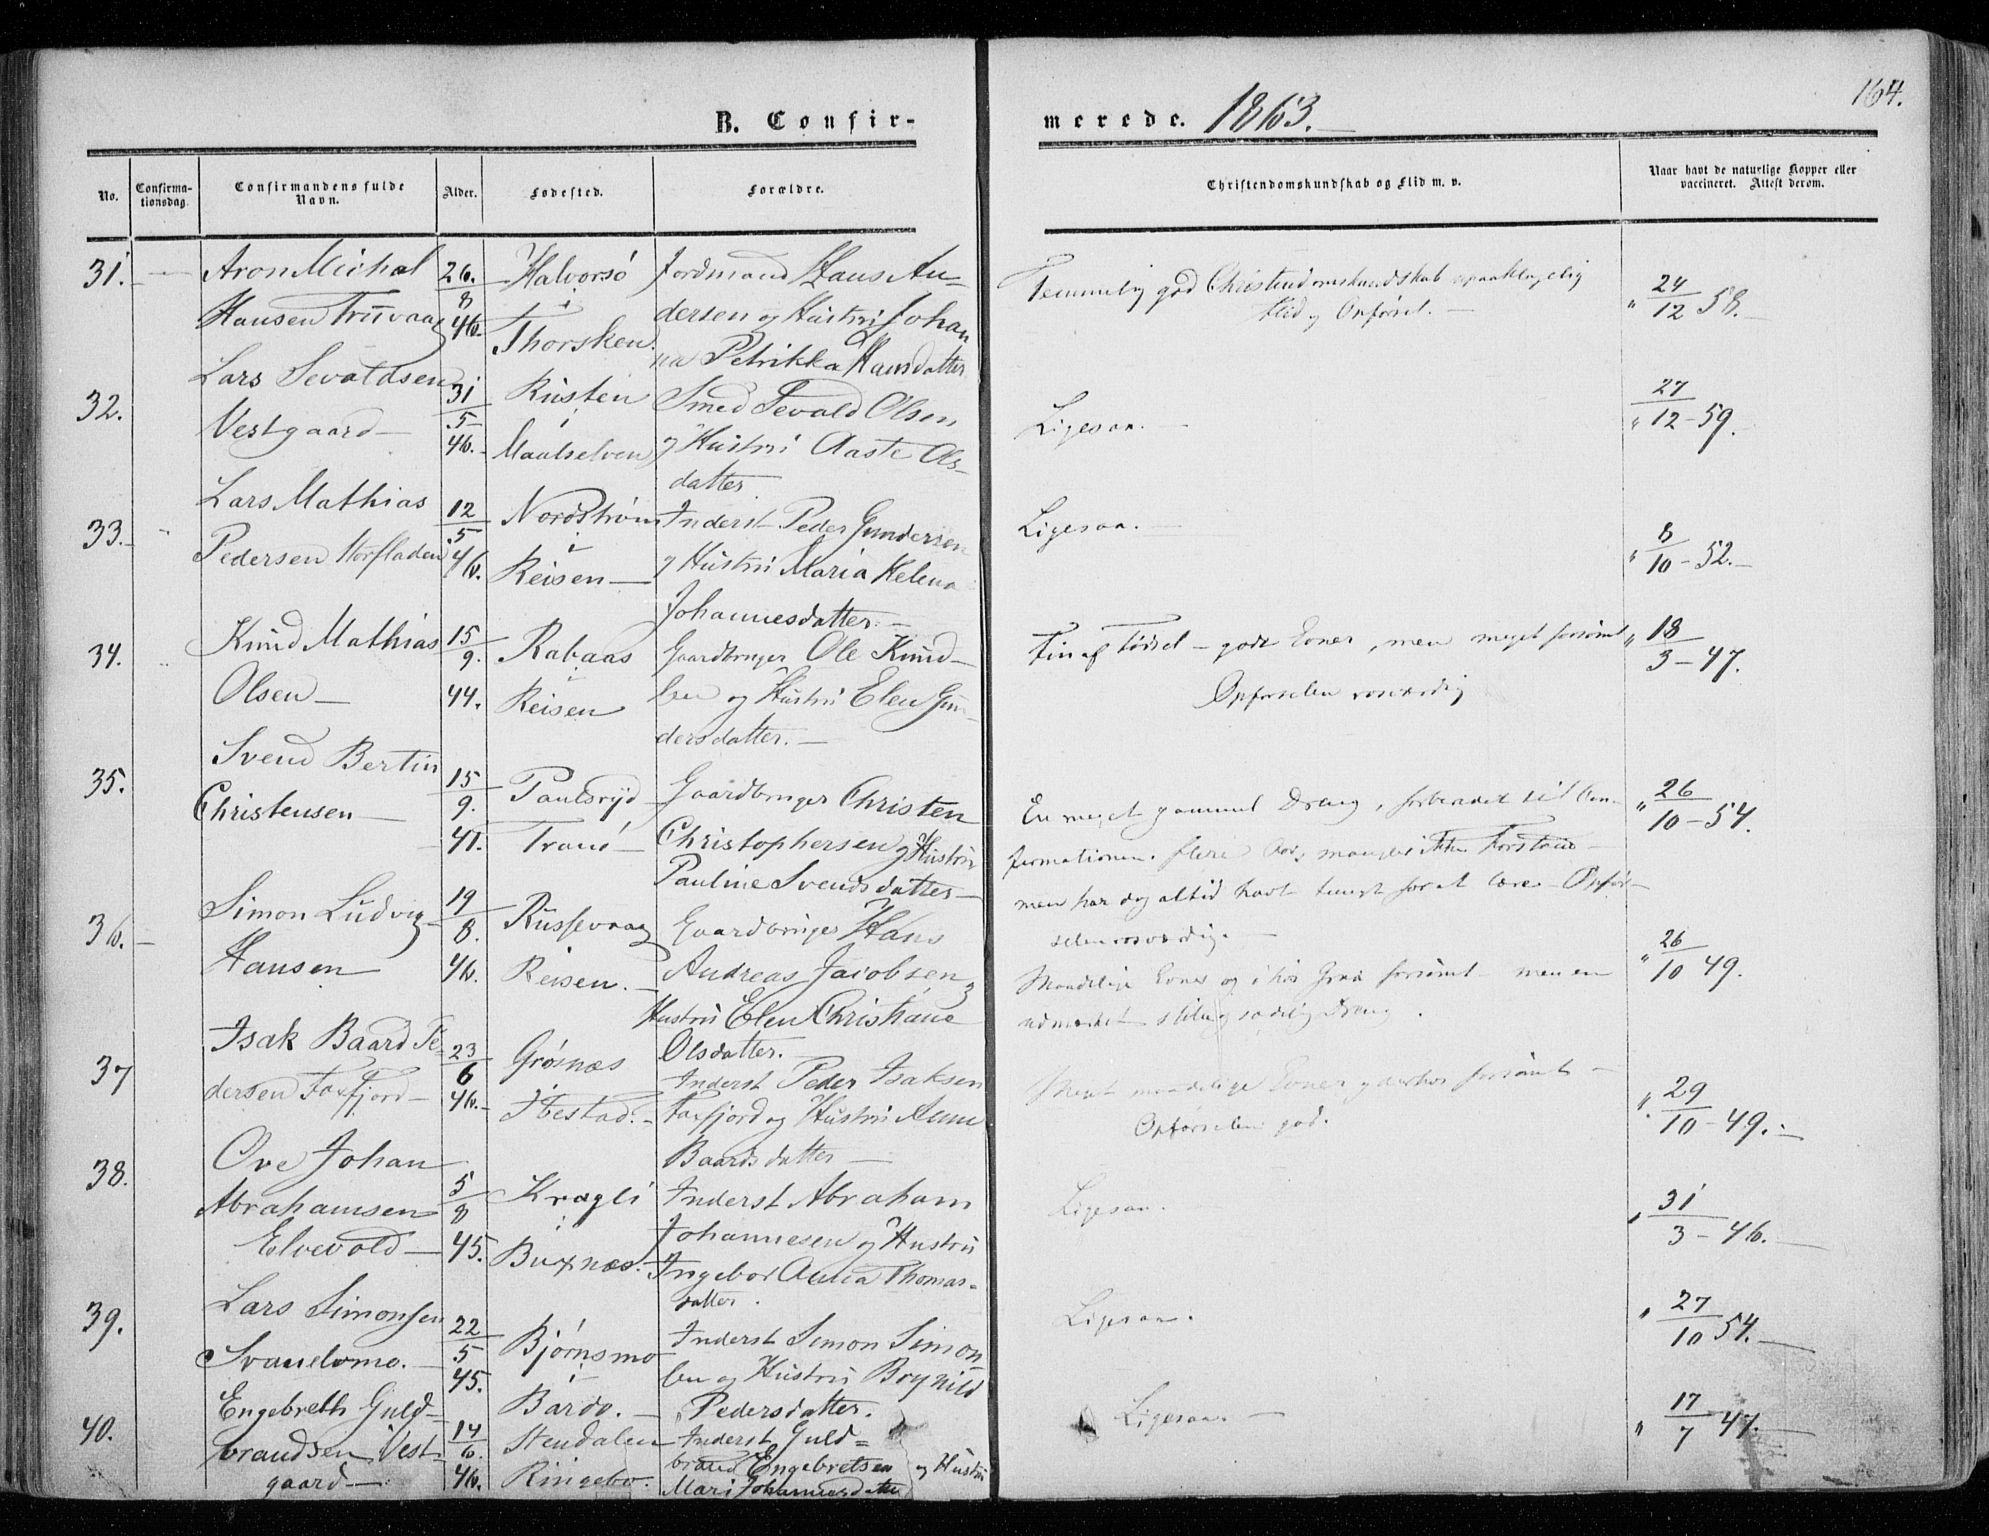 164.
B. Confir-
merede. 1863.
No.
Confirma-
tionsdag.
Confirmandens fulde
Navn.
Alder.
Fødested.
Forældre.
Christendomskundskab og Flid m. v.
Naar havt de naturlige Kopper eller
vaccineret. Attest derom.
31.
Aron Michal
Hansen Trivaag
26.
8
46.
Halvorsø
i
Thorsken.
Jordmand Hans An-
dersen og Hustru Johan
na Petrikka Hansdatter
Temmelig god Christendomskundskab upaaklagelig
Flid og Opførsel.
" 24
12 58.
32.
Lars Sevaldsen
Vestgaard
31
5
46.
Rusten
i
Maalselven
Smed Sevald Olsen
og Hustru Aaste Ols-
datter
Ligesaa.
27
" 12-59.
33.
Lars Mathias
Pedersen Storfladen
12
5
46.
Nordstrøm
i
Reisen
Inderst Peder Gundersen
og Hustru Maria Helena
Johannesdatter.
Ligesaa.
8
" 10-52.
34.
Knud Mathias
Olsen
15
9.
44.
Rabaas
i
Reisen
Gaardbruger Ole Knud-
sen og Hustru Elen Gun
dersdatter.
Fin af Fødsel - gode Evner, men meget forsømt
Opførselen rosværdig
" 18
3-47.
35.
Svend Bertin
Christensen
15
9.
41.
Paulsryd
Tranø
Gaardbruger Christen
Christophersen og Hustru
Pauline Svendsdatter
En meget gammel Dreng, forberedet til Con-
firmationen flere Aar, mangler ikke Forstand
men har dog altid havt tungt for at lære - Opfør-
selen rosværdig.
" 26
10-54.
36.
Simon Ludvig
Hansen
19
8.
46.
Russevaag
Reisen.
Gaardbruger Hans
Andreas Jacobsen og
Hustru Elen Christiane
Olsdatter.
Maadelige Evner og i høi Grad forsømt - men en
udmærket stille og sædelig Dreng.
" 26
10 49.
37
Isak Baard Pe-
dersen Foxfjord
23
6
46.
Grøsnæs
Ibestad.
Inderst Peder Isaksen
Foxfjord og Hustru Anne
Baardsdatter
Meget maadelige Evner og derhos forsømt
Opførselen god.
" 29
10-49.
38.
Ove Johan
Abrahamsen
Elvevold
5
8
45.
Kragli
i
Buxnæs.
Inderst Abraham
Johannesen og Hustru
Ingebor Anna Thomas-
datter.
Ligesaa.
" 31
3-46.
39.
Lars Simonsen
Svanelvmo.
22
5
45.
Bjørnsmo
i
Bardo.
Inderst Simon Simon
sen og Hustru Brynild
Pedersdatter.
Ligesaa.
" 27
10 54.
40.
Engebreth Guld-
brandsen Vest-
gaard
14
6.
46.
Stendalen
Ringebo.
Inderst Guld=
brand Engebretsen og Hustru
Mari Johannesdatter
Ligesaa.
" 17
7 47.